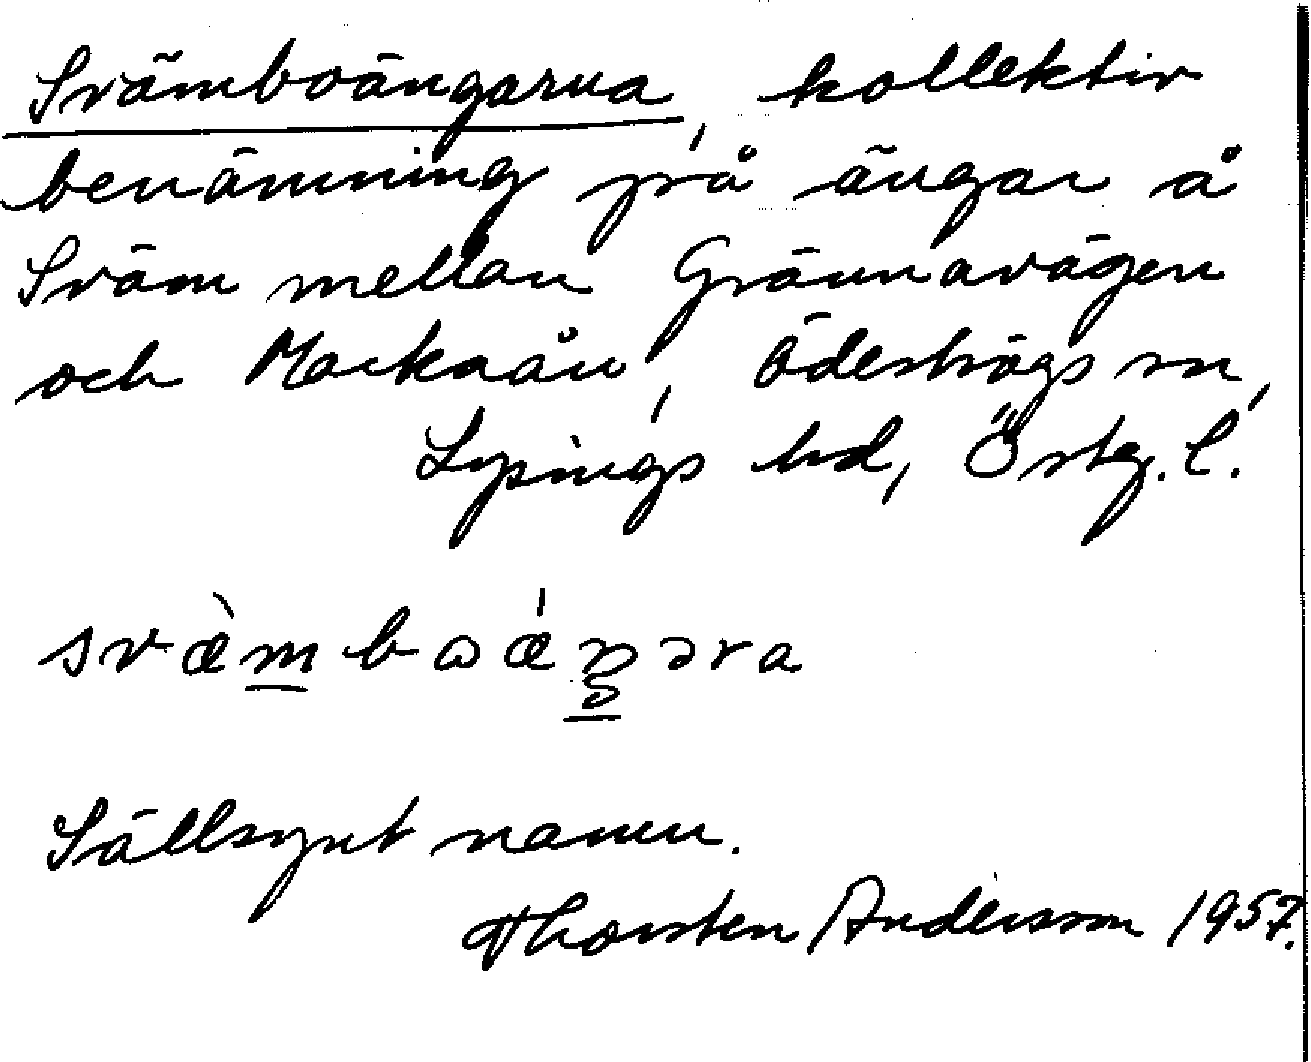 Svämboängarna, kollektiv
benämning på ängar å
Sväm mellan Grännavägen
och Mackaån, Ödeshögs sn,
Lysings hd, Östg. l.
svæ̀m̲bωǽŋ̲əra
Sällsynt namn.
Thorsten Andersson 1957.